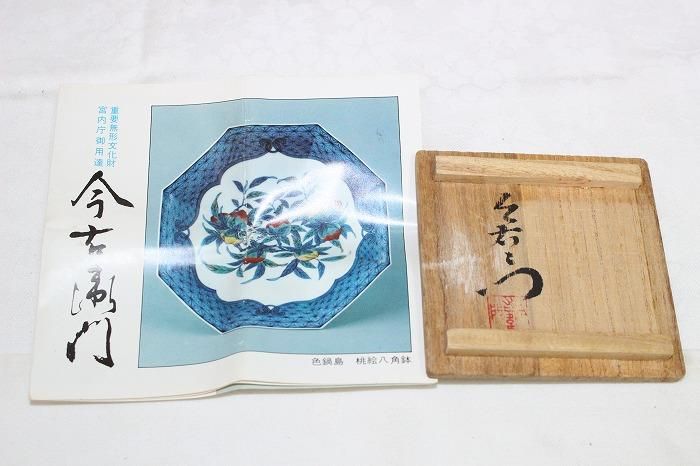 重要無形文化財
宮内庁御用達
今右衛門
色鍋島 桃絵八角鉢
今右衛門